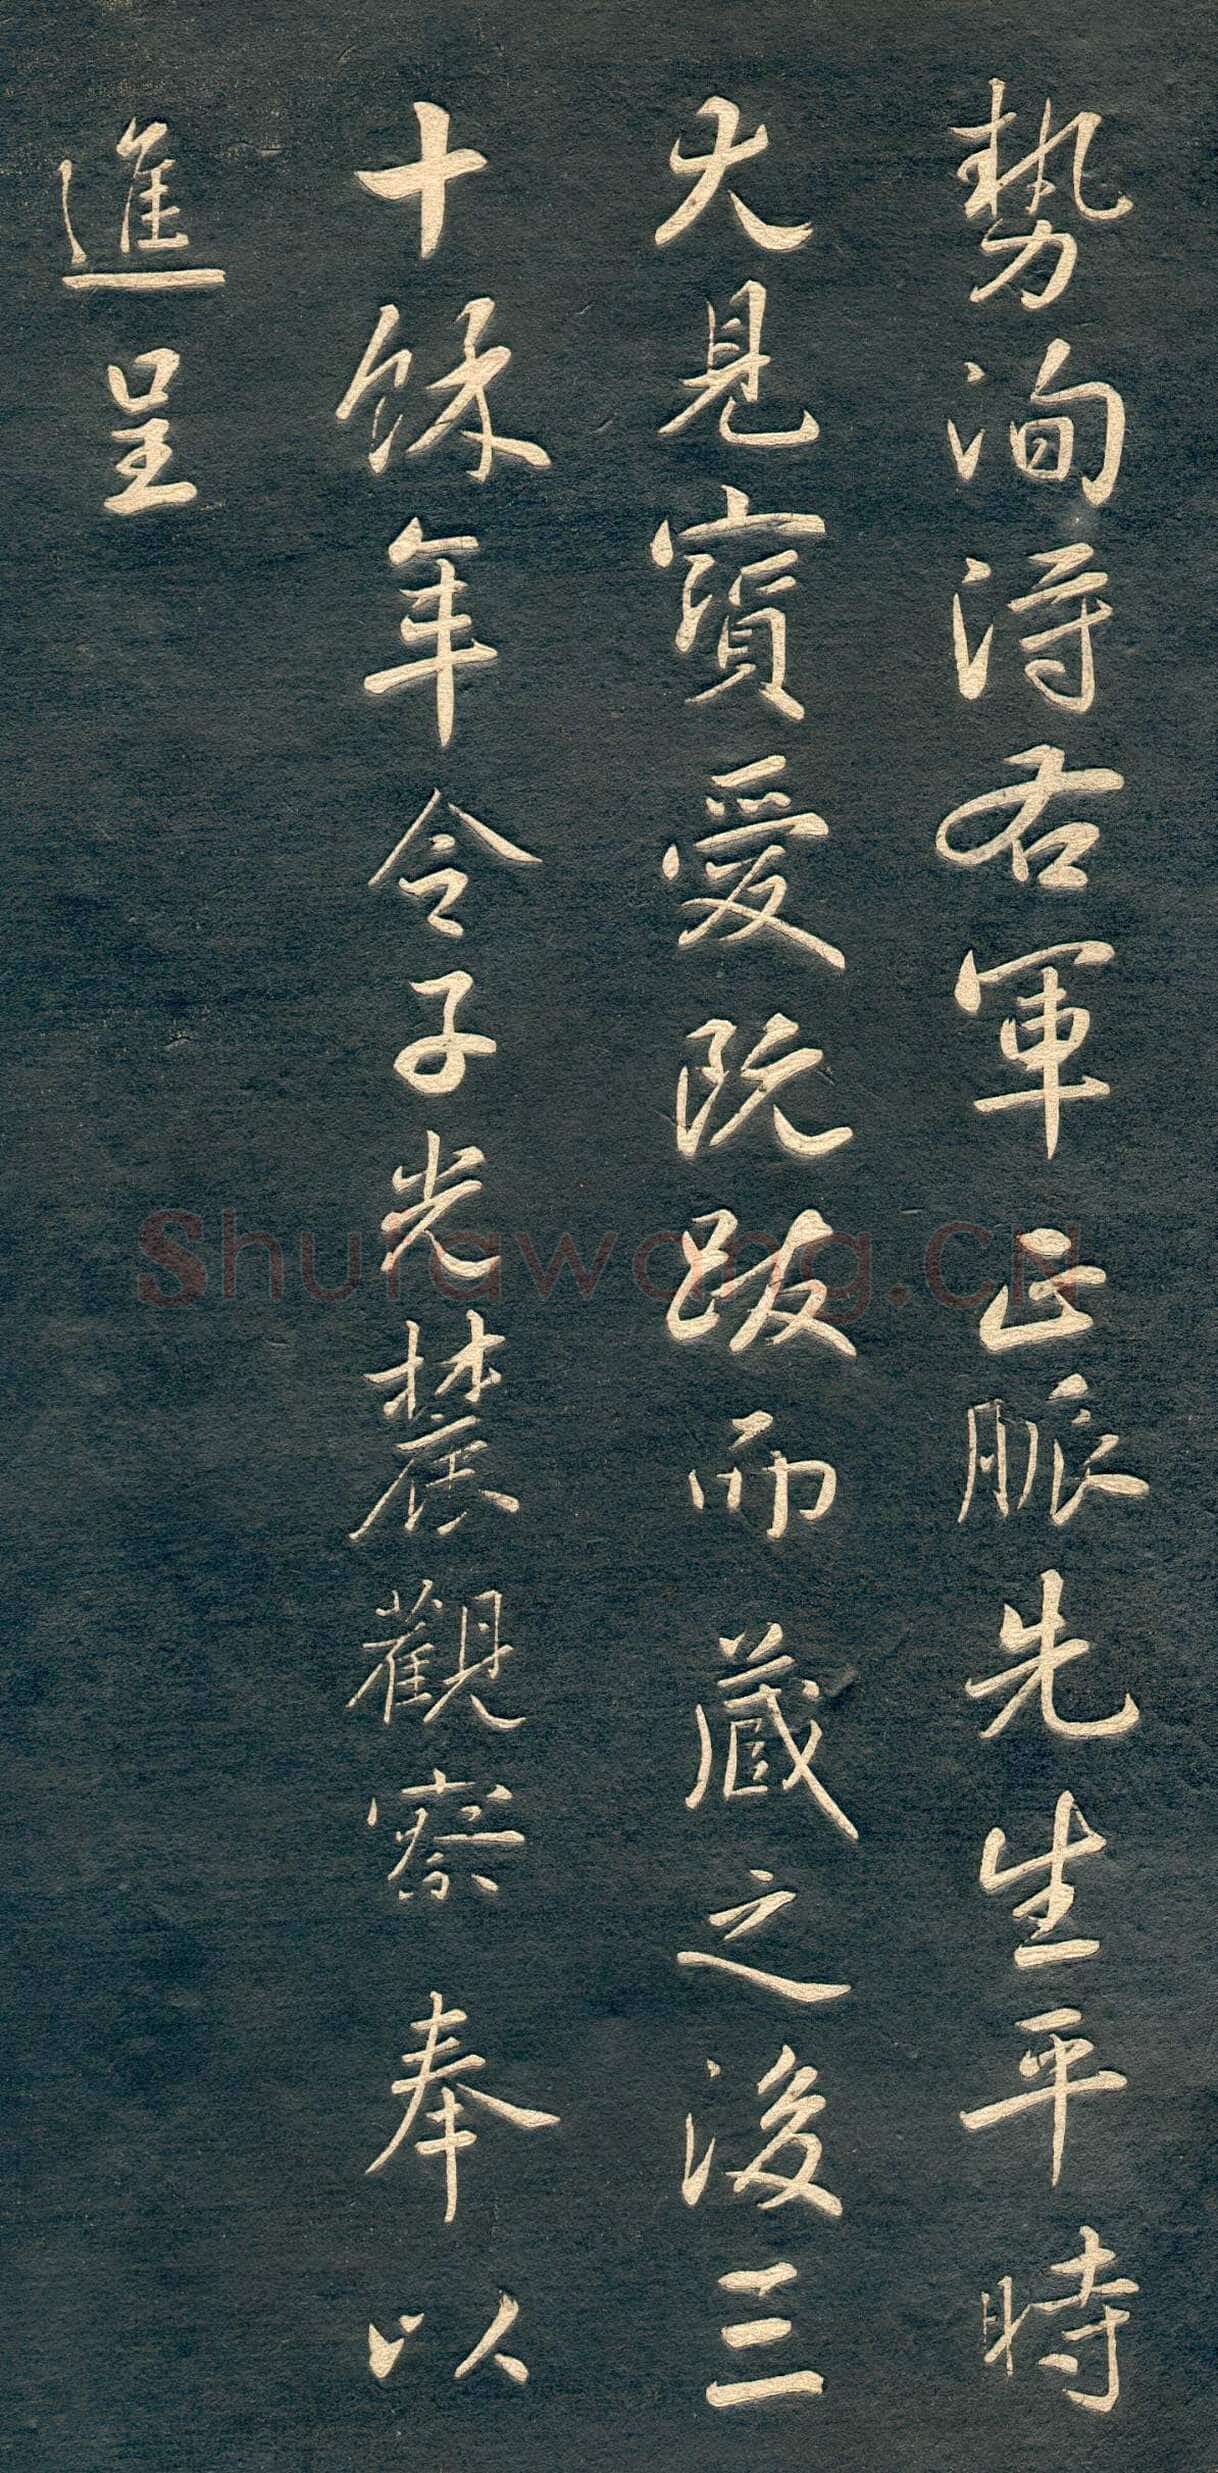 勢洵得右軍正脈先生平時
大見寶愛既跋而藏之後三
十餘年令子光辳觀察奉以
進呈
Shufawang.CN